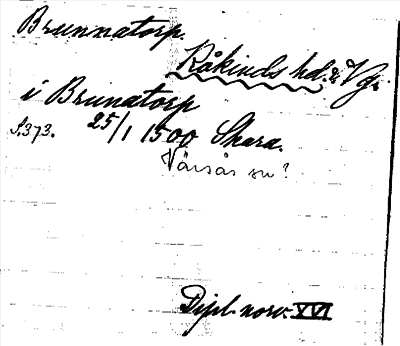 Brunnatorp.
Råkinds hd. Vg.
i Brunatorp
S.373. 25/1 1500 Skara.
Värsås sn?
Dipl. norv. XVI